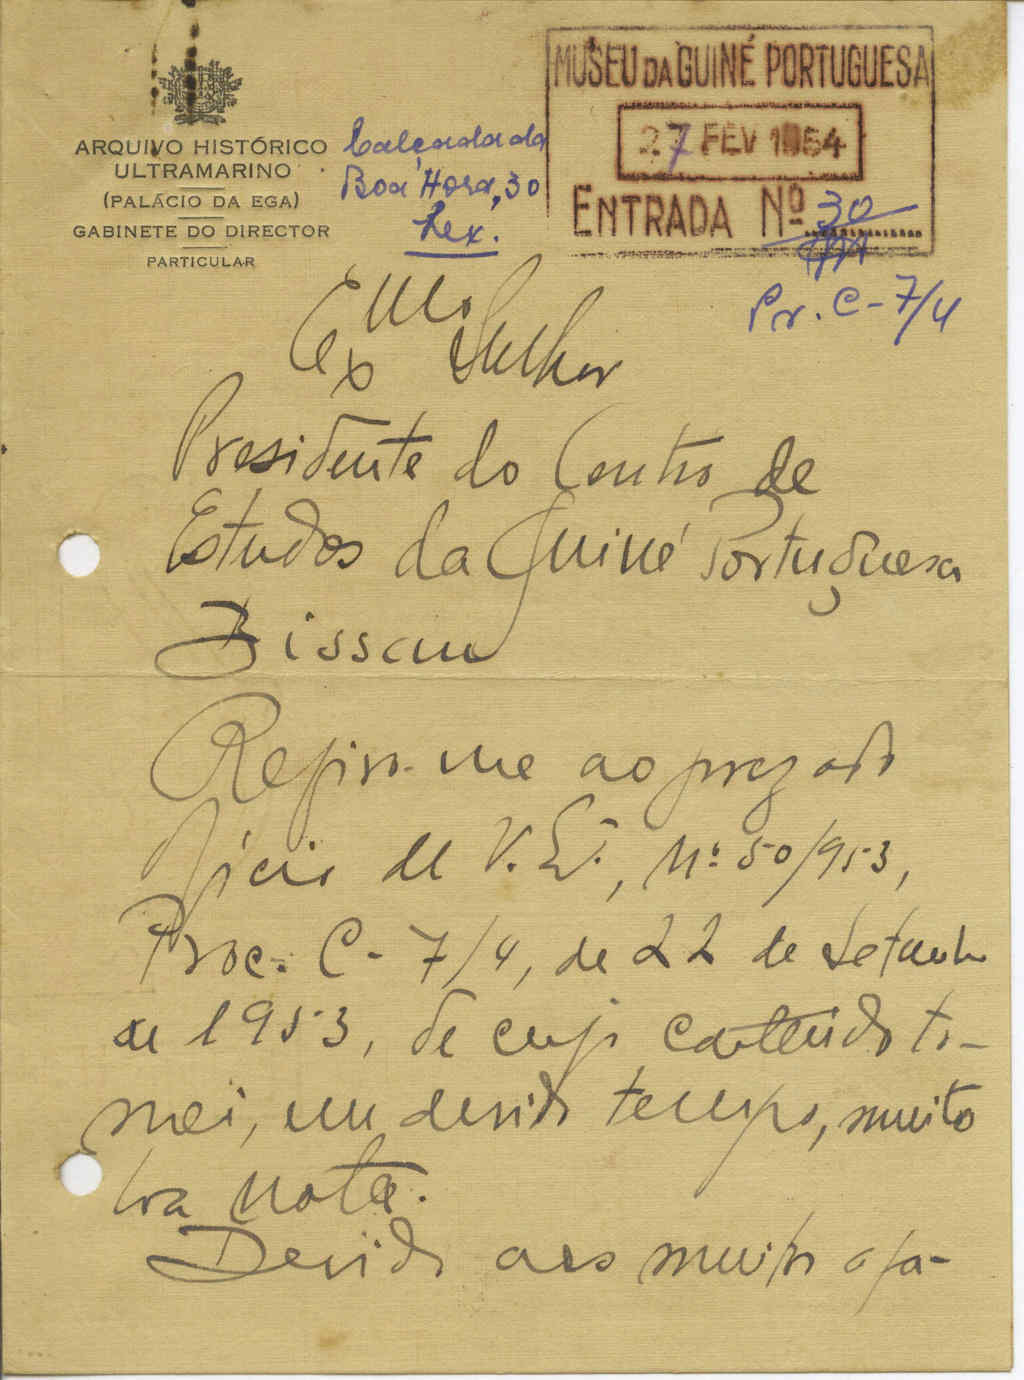 ARQUIVO HISTÓRICO
ULTRAMARINO
(PALÁCIO DA EGA)
GABINETE DO DIRECTOR
PARTICULAR
Calçada da
Boa Hora, 30
Lex.
MUSEU DA GUINÉ PORTUGUESA
27 FEV 1954
ENTRADA Nº 30
Pr. C-7/4
Exmo Senhor
Presidente do Centro de
Estudos da Guiné Portuguesa
Bissau
Refiro-me ao prezado
ofício de V. Ex.ª, Nº 50/953,
Proc. C-7/4, de 22 de Setembro
de 1953, de cujo conteúdo to-
mei, em devido tempo, muito
boa nota.
Devido aos muitos afa-